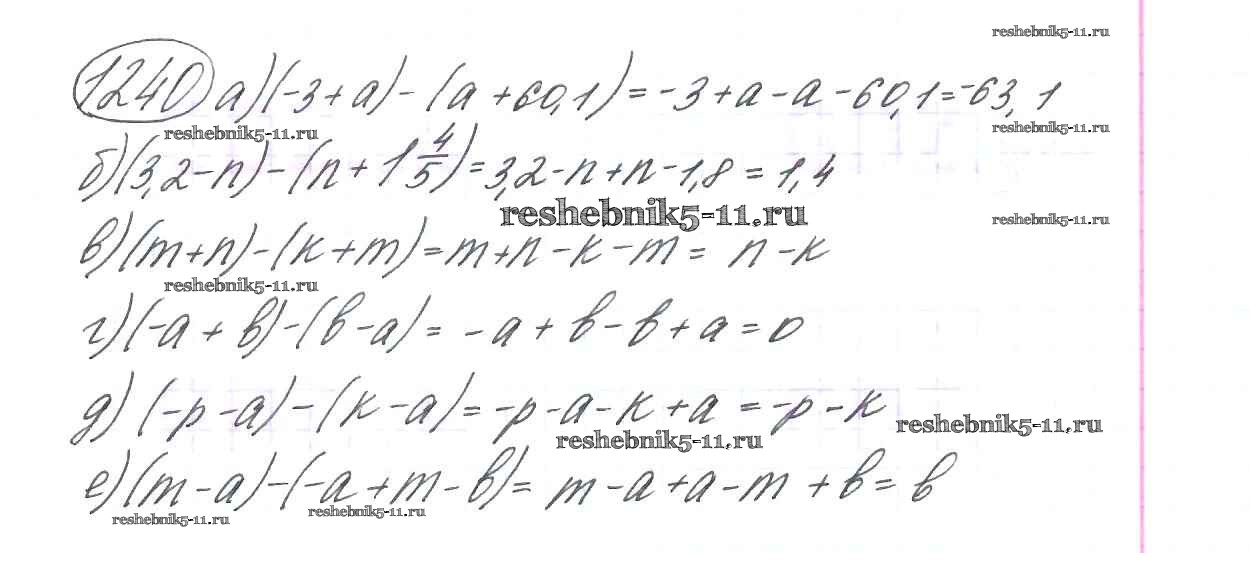 reshebnik5-11.ru
1240 а) (-3+a) - (a+60,1) = -3+a-a-60,1=-63,1
reshebnik5-11.ru reshebnik5-11.ru
б) (3,2-n) - (n+1 4/5) = 3,2-n+n-1,8 = 1,4
reshebnik5-11.ru reshebnik5-11.ru
в) (m+n) - (к+m) = m+n-к-m = n-к
reshebnik5-11.ru
г) (-a+в) - (в-a) = -a+в-в+a=0
д) (-p-a) - (к-a) = -p-a-к+a = -p-к
reshebnik5-11.ru reshebnik5-11.ru
е) (m-a) - (-a+m-в) = m-a+a-m+в=в
reshebnik5-11.ru reshebnik5-11.ru